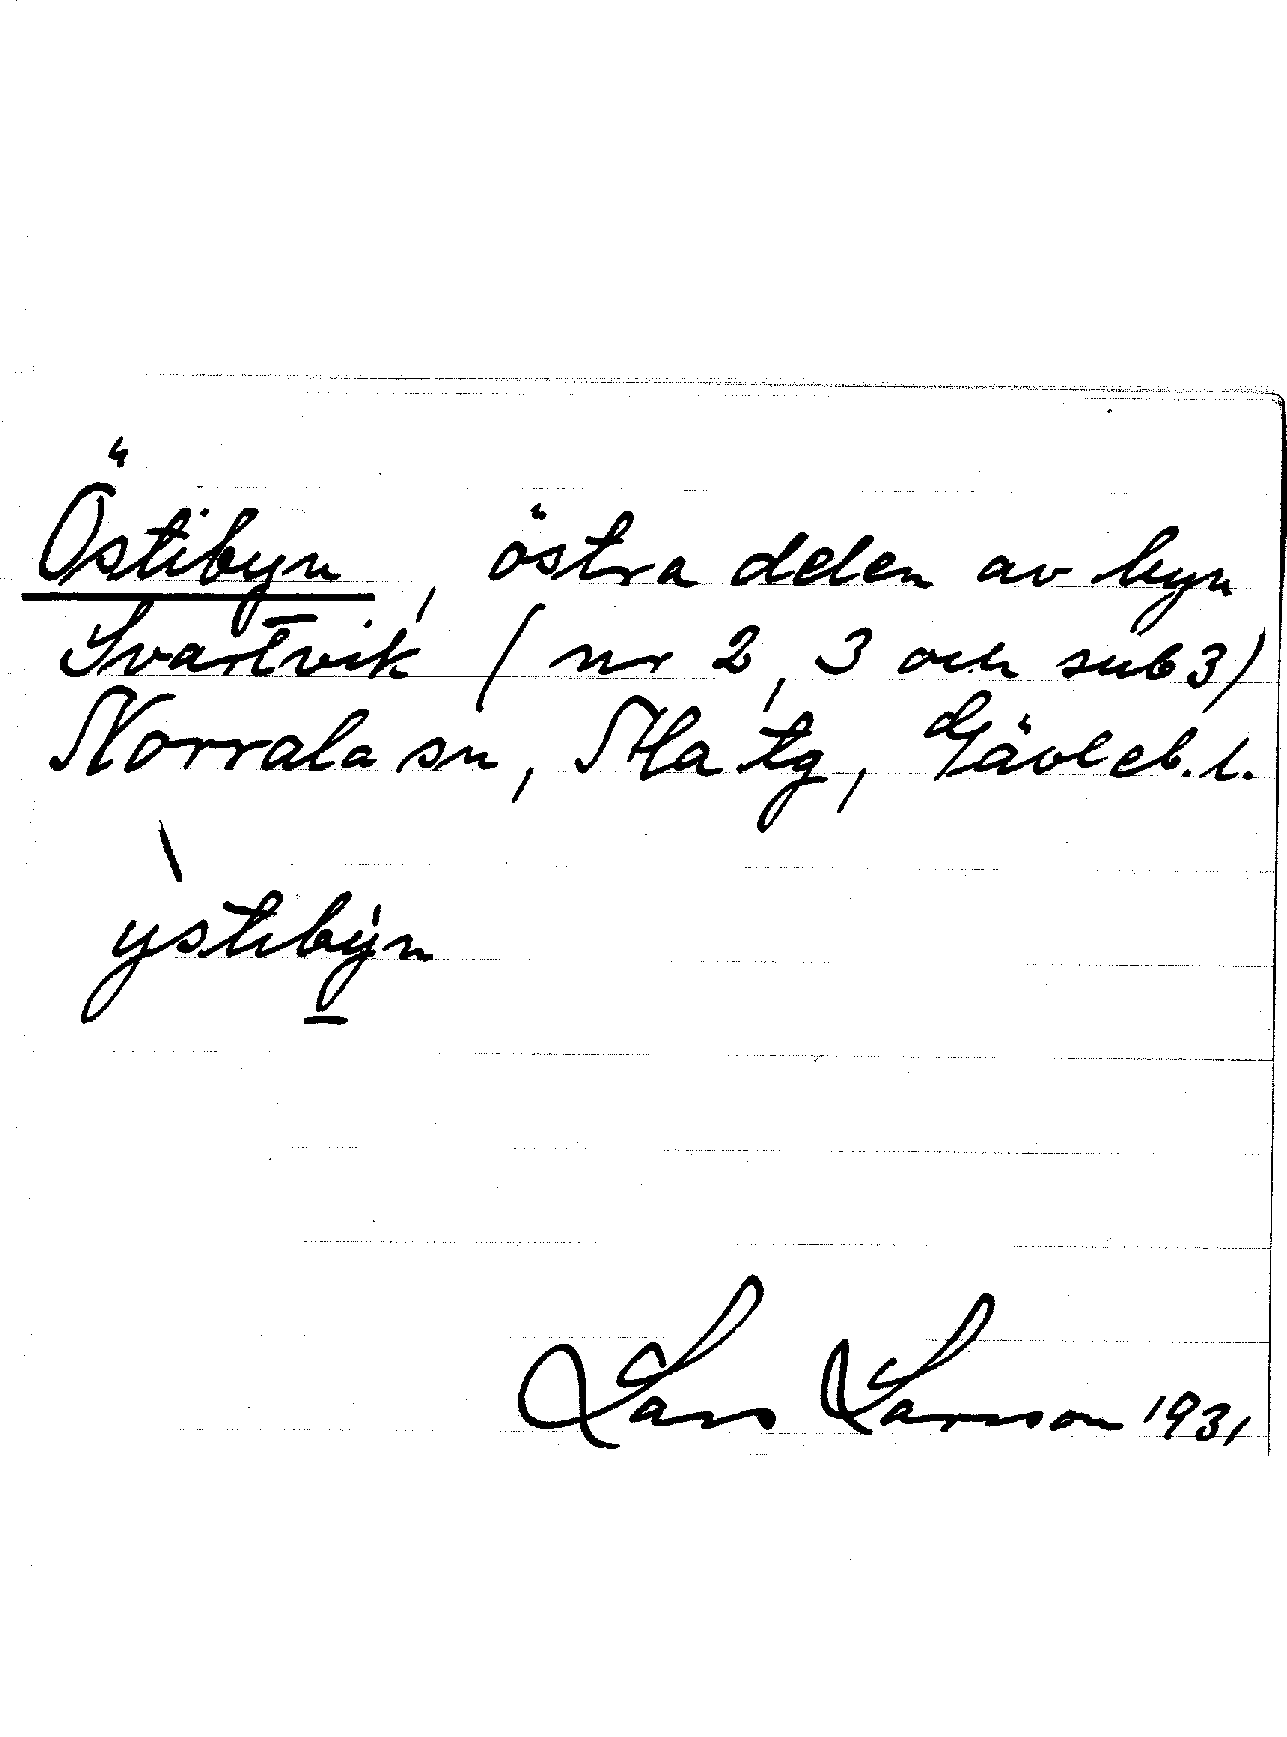 Östibyn, östra delen av byn
Svartvik (nr 2, 3 och sub 3)
Norrala sn, Ala tg, Gävleb. l.
ỳstibýn
Lars Larsson 1931